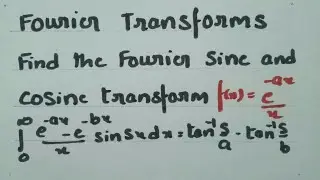 Fourier Transforms
Find the Fourier Sine and
Cosine transform f(x) = e^{-ax}/x
∫_0^∞ (e^{-ax} - e^{-bx})/x sinsxdx = tan^{-1} s/a - tan^{-1} s/b